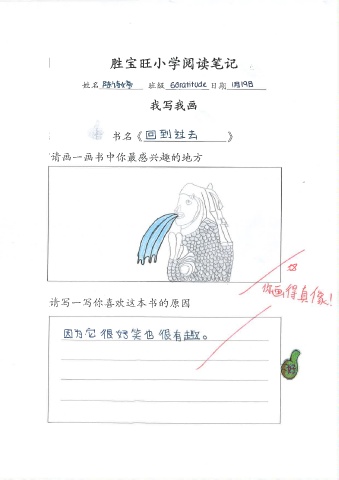 胜宝旺小学阅读笔记
姓名 班级 6Gratitude 日期 1月19日
我写我画
书名《回到过去》
请画一画书中你最感兴趣的地方
你画得真像!
请写一写你喜欢这本书的原因
因为它很好笑也很有趣。